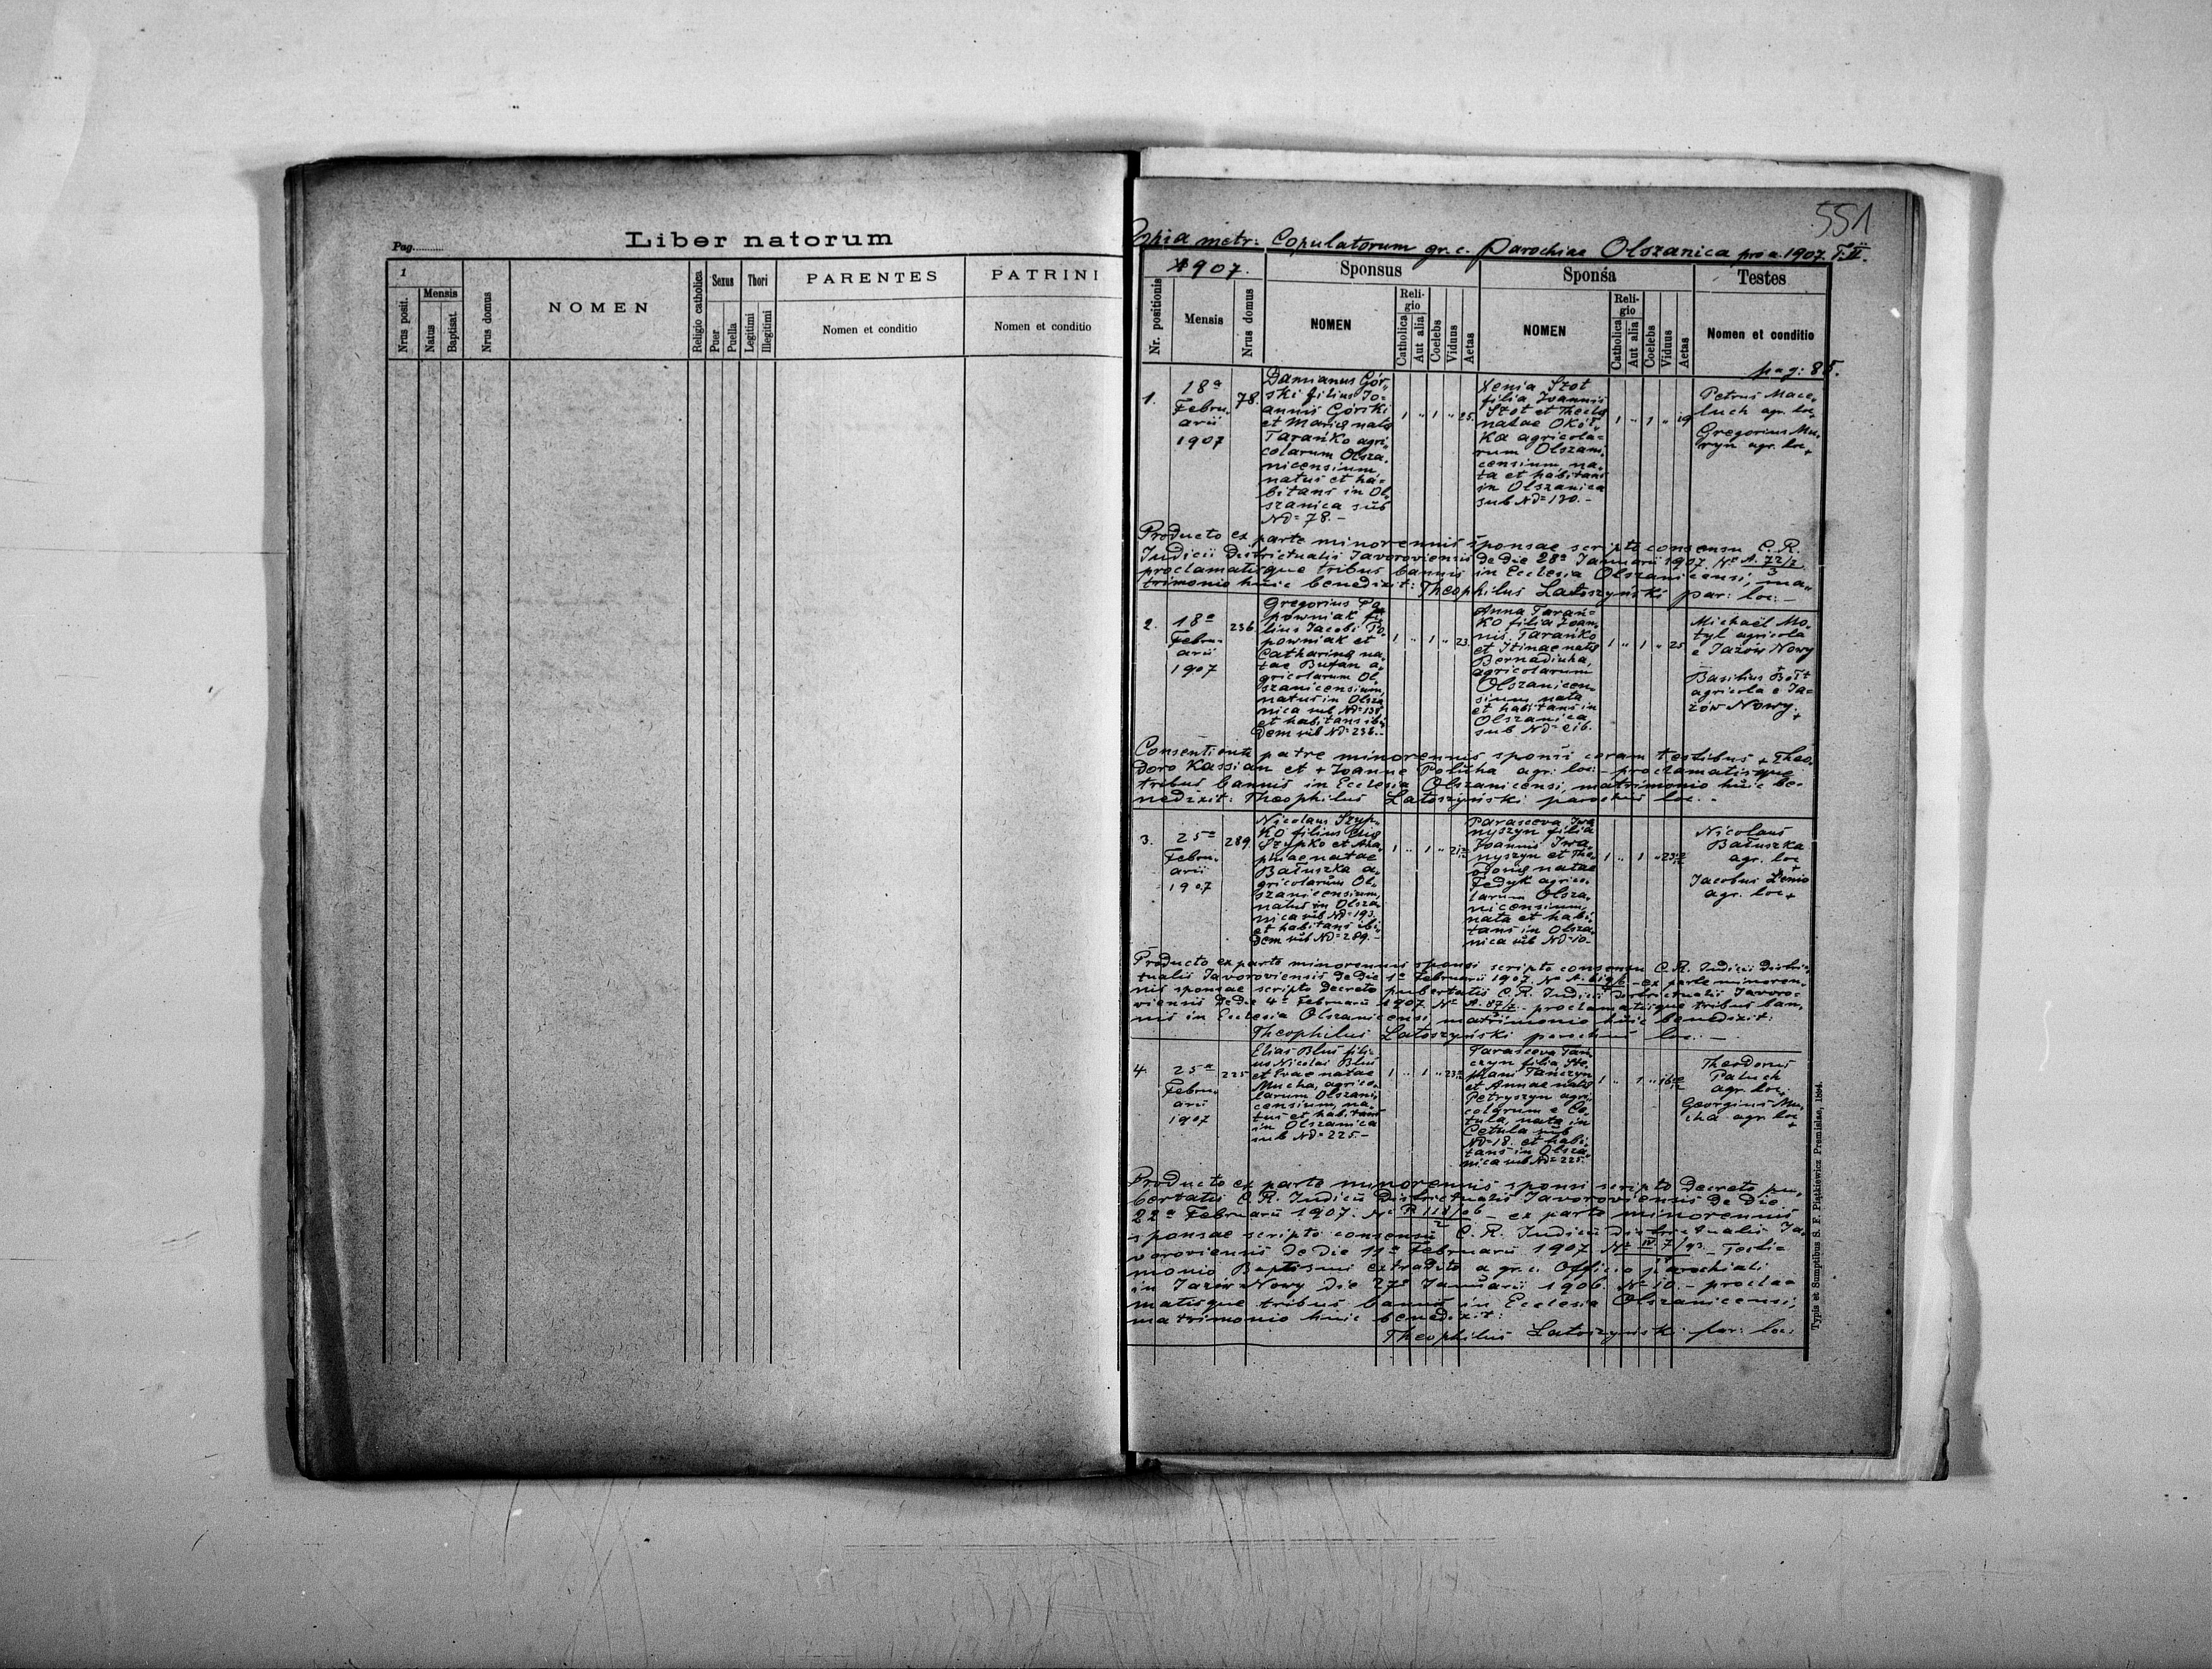 551
Pag..........
Liber natorum
1
Nrus posit.
Mensis
Natus
Baptisat.
Nrus domus
NOMEN
Religio catholica
Sexus
Puer
Puella
Thori
Legitimi
Illegitimi
PARENTES
Nomen et conditio
PATRINI
Nomen et conditio
Copia metr: Copulatorum gr. c. Parochiae Olszanica pro a. 1907. T. II.
1907.
Nr. positionis
Mensis
Nrus domus
Sponsus
NOMEN
Religio
Catholica
Aut alia
Coelebs
Viduus
Aetas
Sponsa
NOMEN
Religio
Catholica
Aut alia
Coelebs
Viduus
Aetas
Testes
Nomen et conditio
pag: 85.
1.
18a
Febru-
arii
1907
78.
Damianus Gór-
ski filius Jo-
annis Górski
et Mariae natae
Tarańko agri-
colarum Olsza-
nicensium,
natus et ha-
bitans in Ol-
szanica sub
Nd= 78.-
1 " 1 " 25.
Xenia Szot
filia Joannis
Szot et Theclae
natae Okół-
ka agricola-
rum Olszani-
censium, na-
ta et habitans
in Olszanica
sub Nd= 130.-
1 " 1 " 19
Petrus Mace-
luch agr. loc.
Gregorius Mu-
ryn agr. loc. +
Producto ex parte minorennis sponsae scripto consensu C. R.
Judicii Districtualis Javoroviensis de die 28a Januarii 1907. No A. 72/7
3
proclamatisque tribus bannis in Ecclesia Olszanicensi, ma-
trimonio huic benedixit: Theophilus Latoszyński par: loc:-
2.
18a
Febru-
arii
1907
236
Gregorius Po-
powniak fi-
lius Jacobi Po-
powniak et
Catharinae na-
tae Bufan a-
gricolarum Ol-
szanicensium,
natus in Olsza-
nica sub Nd= 138
et habitans ibi-
dem sub Nd= 236.-
1 " 1 " 23.
Anna Tarań-
ko filia Joan-
nis Tarańko
et Irinae natae
Bernadiuha,
agricolarum
Olszanicen-
sium, nata
et habitans in
Olszanica
sub Nd= 216.
1 " 1 " 25
Michael Mo-
tyl agricola
e Jazów Nowy
+
Basilius
agricola e Ja-
zów Nowy.
+
Consentiente patre minorennis sponsi coram testibus + Theo-
doro Kassian et + Joanne Poluha agr: loc:- proclamatisque
tribus bannis in Ecclesia Olszanicensi, matrimonio huic be-
nedixit: Theophilus Latoszyński parochus loc.-
3.
25a
Febru-
arii
1907
289
Nicolaus Szup-
ko filius
Szupko et Aga-
phiae natae
Bałuszka a-
gricolarum Ol-
szanicensium,
natus in Olsza-
nica sub Nd= 193
et habitans ibi-
dem sub Nd= 289.-
1 " 1 "
Parasceva Iwa-
nyszyn filia
Joannis Iwa-
nyszyn et
natae
Fedyk agrico-
larum Olsza-
nicensium,
nata et habi-
tans in Olsza-
nica sub Nd= 10.-
1 " 1 "
Nicolaus
Bałuszka
agr. loc
+
Jacobus Denio
agr. loc +
Producto ex parte minorennis sponsi scripto consensu C. R. Judicii Distric-
tualis Javoroviensis de die 1a Februarii 1907. - ex parte minoren-
nis sponsae scripto Decreto pubertatis C. R. Judicii Districtualis Javoro-
viensis de die 4a Februarii 1907. No A. 87/7. proclamatisque tribus ban-
nis in Ecclesia Olszanicensi, matrimonio huic benedixit:
Theophilus Latoszyński parochus loc.-
4.
25a
Febru-
arii
1907
225
Elias Blus fili-
us Nicolai Blus
et Evae natae
Mucha, agrico-
larum Olszani-
censium, na-
tus et habitans
in Olszanica
sub Nd= 225.-
1 " 1 "
Parasceva Tań-
czyn filia Ste-
phani Tańczyn
et Annae natae
Petryszyn agri-
colarum e Ce-
tula, nata in
Cetula sub
Nd= 18. et habi-
tans in Olsza-
nica sub Nd= 225.
1 " 1 "
Theodorus
Paluch
agr. loc. +
Georgius Mu-
cha agr. loc
+
Producto ex parte minorennis sponsi scripto Decreto pu-
bertatis C. R. Judicii Districtualis Javoroviensis de die
22a Februarii 1907. No P 118/06 - ex parte minorennis
2
sponsae scripto consensu C. R. Judicii districtualis Ja-
voroviensis de die 11a Februarii 1907 No IV 7/93. - Testi-
monio Baptismi extradito a gr. c. Officio parochiali
in Jazów Nowy die 27a Januarii 1906. No 10.- procla-
matisque tribus bannis in Ecclesia Olszanicensi,
matrimonio huic benedixit:
Theophilus Latoszyński par: loc:
Typis et Sumptibus S. F. Piątkiewicz Premisliae, 1894.